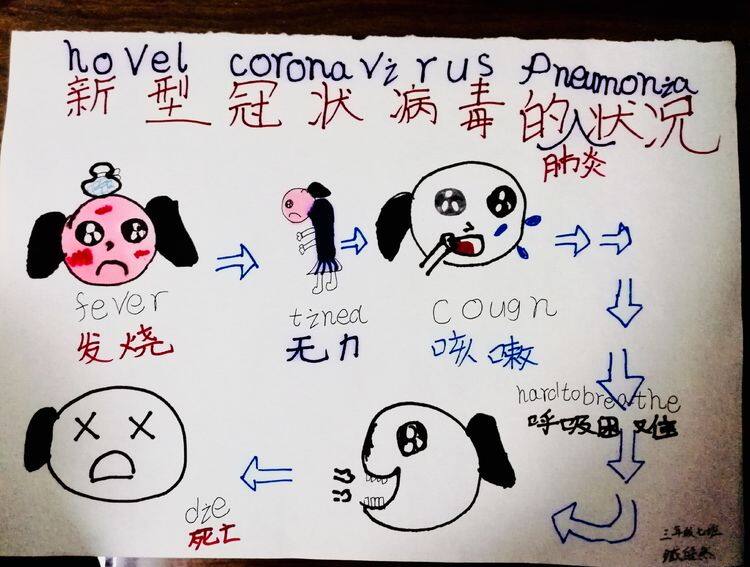 novel coronavirus Pneumonia
新型冠状病毒的状况
肺炎
fever
发烧
tired
无力
cough
咳嗽
hard to breathe
呼吸困难
die
死亡
三年级七班